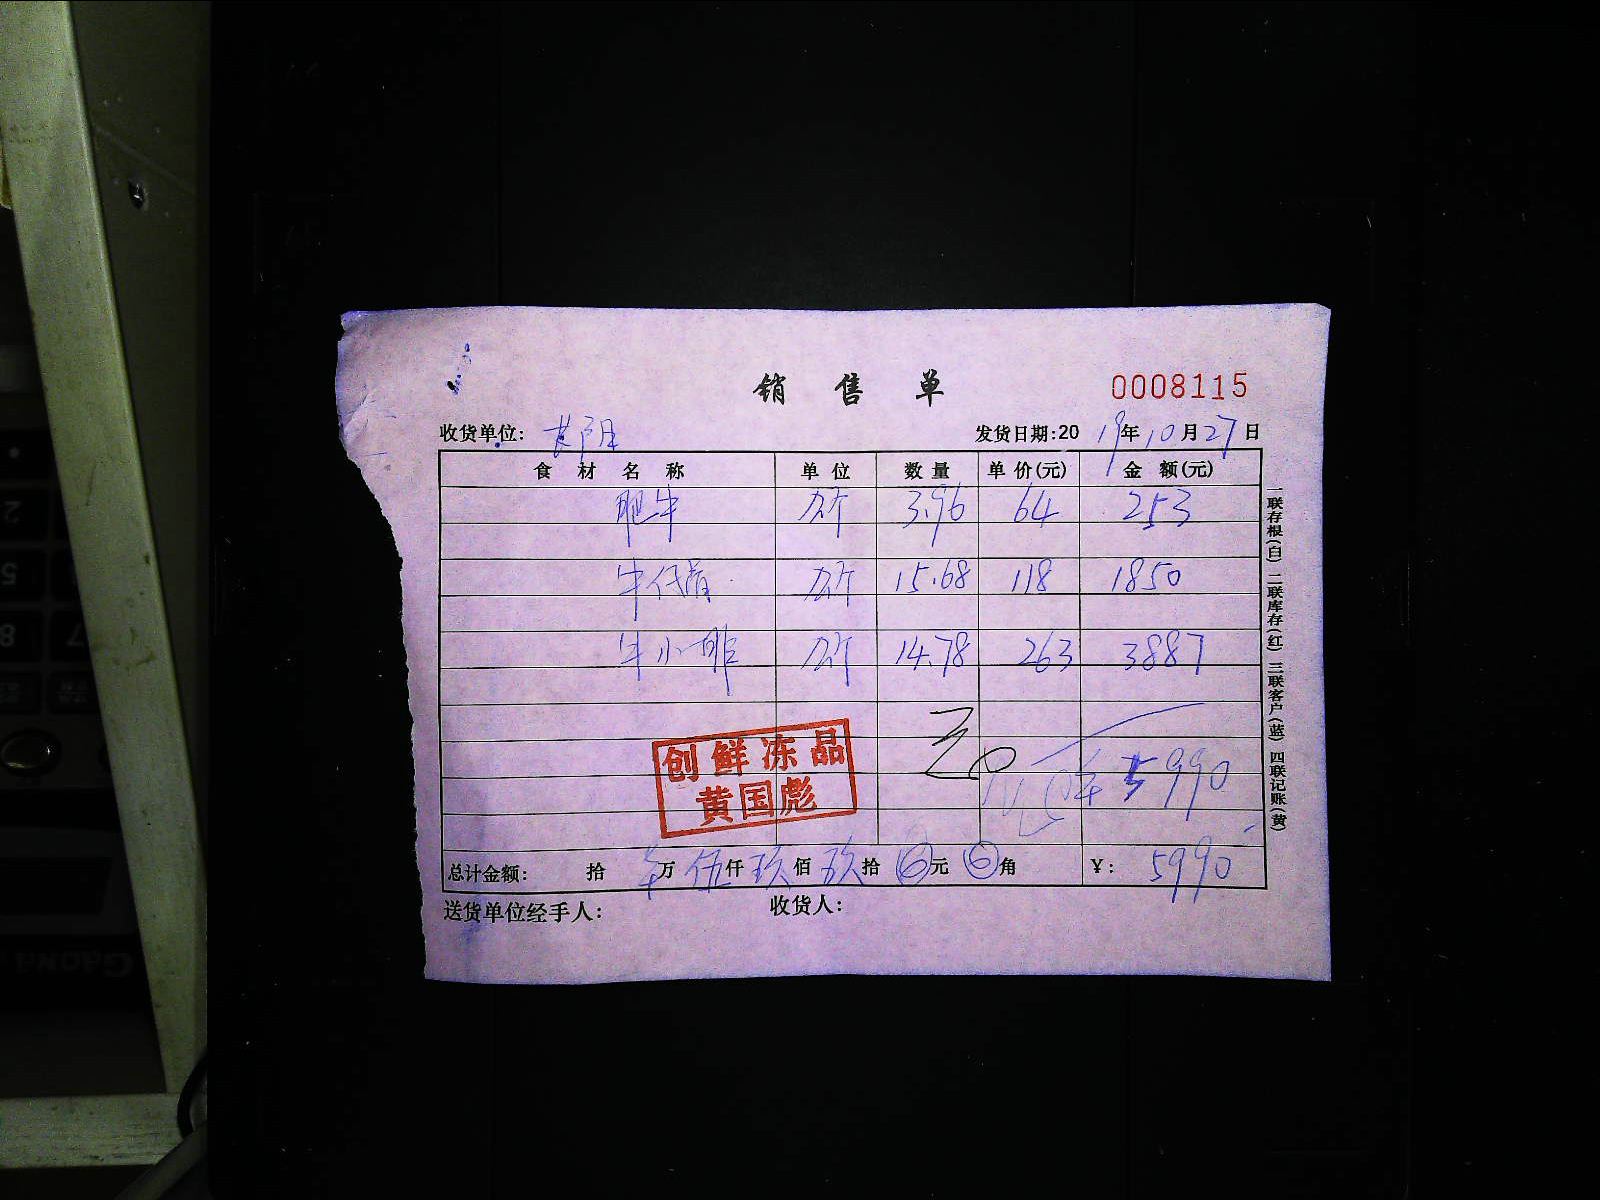 销售单 0008115
收货单位: 发货日期:2019年10月27日
食材名称 单位 数量 单价(元) 金额(元)
肥牛 公斤 3.96 64 253
牛仔骨 公斤 15.68 118 1850
牛小排 公斤 14.78 263 3887
创鲜冻品
黄国彪
5990
总计金额: 拾 万 伍仟 玖佰 玖拾 元 角 ¥: 5990
送货单位经手人: 收货人:
一联存根(白) 二联库存(红) 三联客户(蓝) 四联记账(黄)